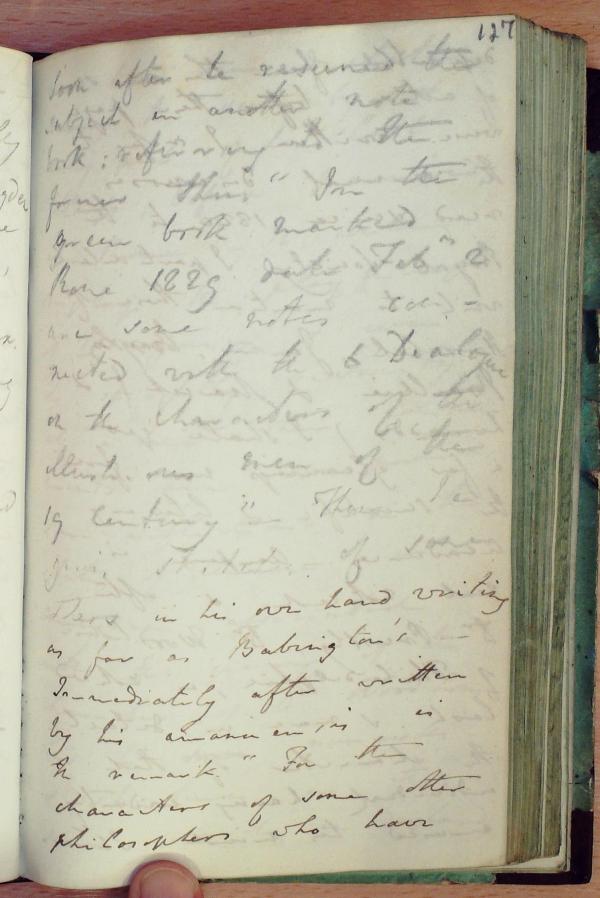 127
Soon after he resumed the
subject in another note
book: referring to the
former thus " In the
green book marked
Rome 1829 date Feby 2
are some notes con-
nected with the 6 Dialogue
on the characters of the
illustrious men of the
19 Century "
of some
in his own hand writing
as far as Babington's -
Immediately after written
by his amanuensis is
the remark " For the
characters of some other
philosophers who have